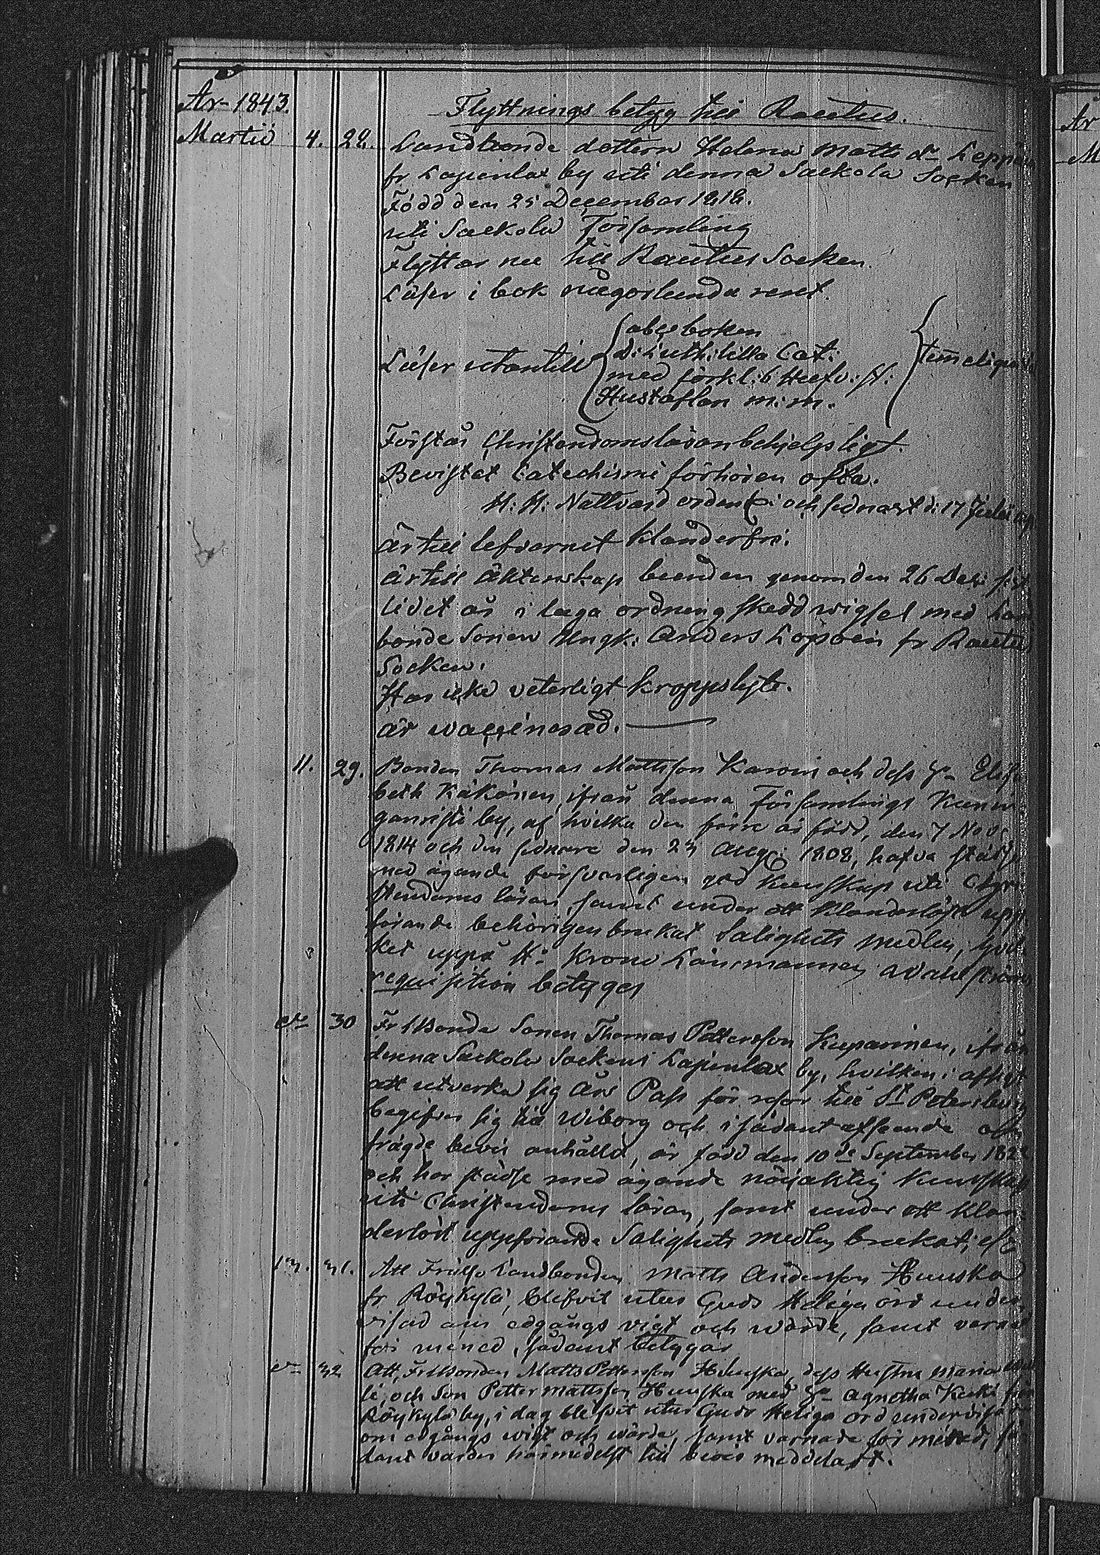 År 1843.
Flyttnings betyg till Rautus.
Martii 4. 28. Landbonde dottern Helena Matts dr Leppän
fr Lapinlax by uti denna Sackola Socken
Född den 25 December 1818.
uti Sackola Församling
Flyttar nu till Rautus Socken.
Läser i bok någorlunda rent.
Läser utantill { abc boken
D: Luth: lilla Cat:
med förkl: 6 Hufv: st:
Hustaflan m: m. } temeligen
Förstår Christendomsläran behjelpligt.
Bevistat Catechismi förhören ofta.
H: H: Nattvard ordentl: och sednast d: 17 Julii
Är till lefvernet klanderfri.
Är till äktenskap bunden genom den 26 Dec: sist
lidet år i laga ordning skedd wigsel med Land
bonde Sonen Ungk: Anders Loponen fr Rautus
Socken.
Har icke veterligt kroppslyte.
är waccinerad.
11. 29. Bonden Thomas Mattsson Karvin och dess h- Elisa
beth Käkönen, ifrån denna Församlings Kunni
gannista by, af hvilka den förre är född, den 7 Nov:
1814 och den sednare den 23 Aug: 1808, hafva städse
med ägande försvarligen god kunskap uti Chri
stendoms läran, samt under ett klanderlöst upp
förande behörigen brukat Salighets medlen, hvil
ket uppå Hr Krono Länsmannen
requisition betygas
d- 30 Fr: Bonde Sonen Thomas Pettersson Kuparinen, ifrån
denna Sackola Sockens Lapinlax by, hvilken i afsigt
att utverka sig års Pass för resor till St Petersburg
begifver sig till Wiborg och i sådant afseende om
frägde bevis anhållit, är född den 10de September 182
och har städse med ägande nöjaktig kunskap
uti Christendoms läran, samt under ett klan
derlöst uppförande Salighets medlen brukat;
13. 31. Att Frälse Landbonden Matts Andersson Hunska
fr Röykylä, blifvit utur Guds Heliga ord under
visad om edgångs vigt och wärde, samt varnad
för mened, sådant betygas
d- 32 Att, Fr: Bonden Matts Pettersson Hunska, dess Hustru Maria
och Son Petter Mattsson Hunska med h- Agnetha Kuki från
Röykylä by, i dag blifvit utur Guds Heliga ord undervisa
om edgångs wigt och wärde, samt varnade för mened, så
dant warder härmedelst till bevis meddelat.
År
M